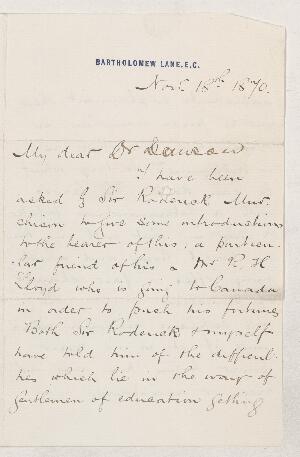 BARTHOLOMEW LANE. E.C.
Nov. 18th 1870.
My dear Dr Dawson
I have been
asked by Sir Roderick Mur-
chison to give some introductions
to the bearer of this; a particu-
-lar friend of his a Mr P. H
Lloyd who is going to Canada
in order to push his fortunes
Both Sir Roderick & myself
have told him of the difficul-
ties which lie in the way of
gentlemen of education getting